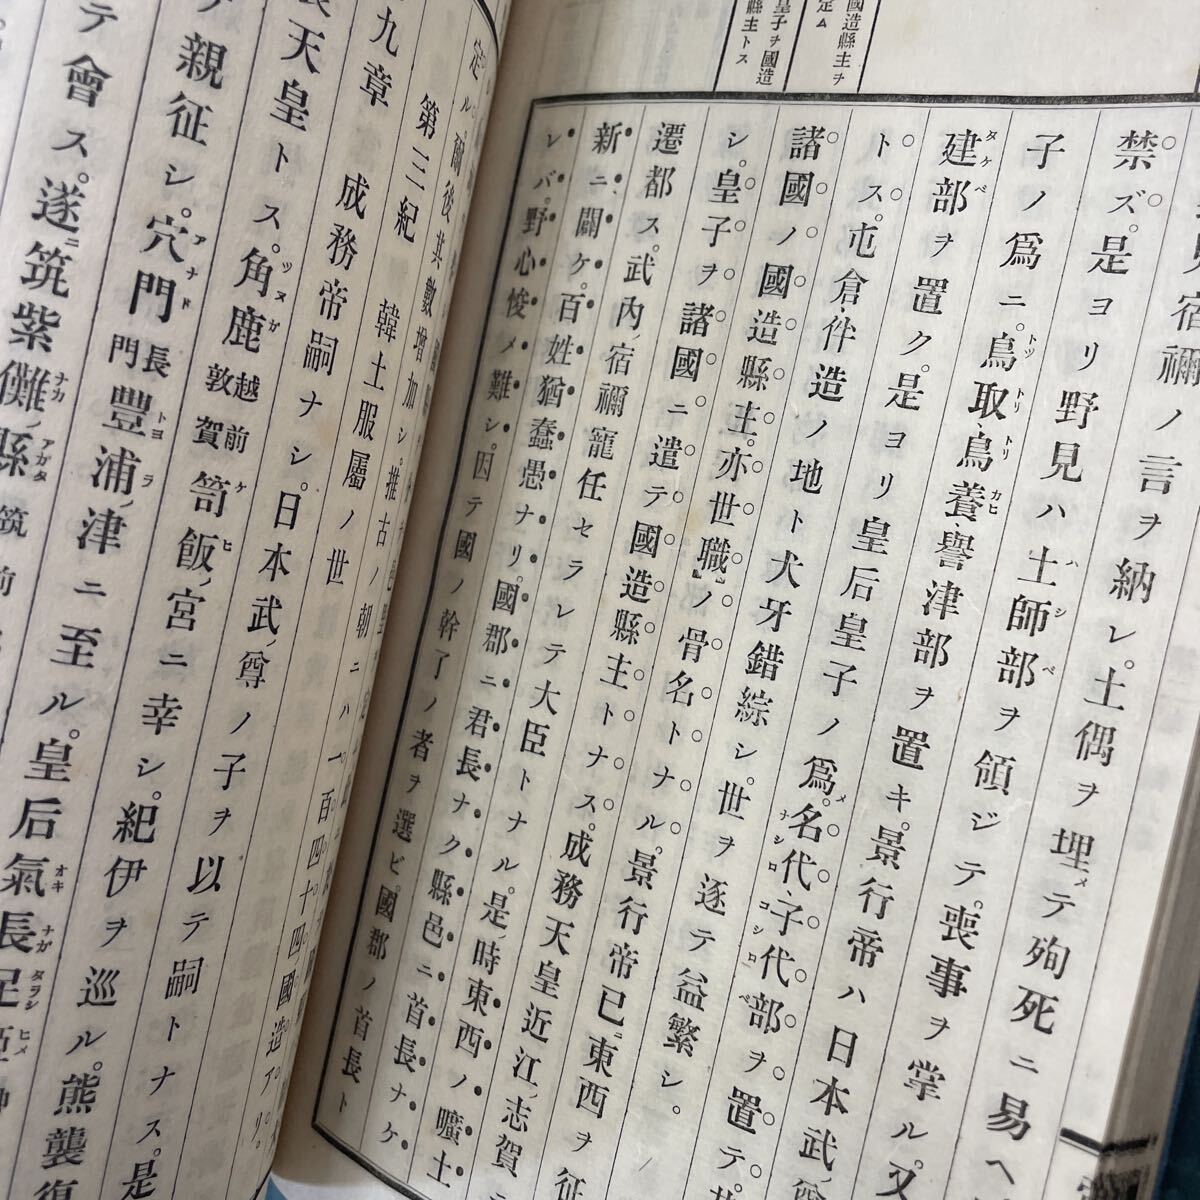 國造縣主ヲ
定ム
皇子ヲ國造
縣主トス
宿禰ノ言ヲ納レ。土偶ヲ埋メテ殉死ニ易ヘ
禁ズ。是ヨリ野見ハ土師部ヲ領ジテ。喪事ヲ掌ル。又
子ノ爲ニ。鳥取、鳥養、譽津部ヲ置キ。景行帝ハ日本武、
建部ヲ置ク。是ヨリ皇后皇子ノ爲メ。名代、子代部ヲ置テ。
トス。屯倉、件造ノ地ト犬牙錯綜シ。世ヲ逐テ益繁シ。
諸國ノ國造縣主。亦世職ノ骨名トナル。景行帝已ニ東西ヲ征
シ。皇子ヲ諸國ニ遣テ國造縣主トナス。成務天皇近江ノ志賀ニ
遷都ス。武內ノ宿禰寵任セラレテ大臣トナル。是ノ時東西ノ曠土
新ニ闢ケ。百姓猶蠢愚ナリ。國郡ニ君長ナク縣邑ニ首長ナケ
レバ。野心悛メ難シ。因テ國ノ幹了ノ者ヲ選ビ。國郡ノ首長ト
定ル。爾後其數增加シ。推古ノ朝ニハ一百四十四國造アリ。
九章 第三紀 韓土服屬ノ世
成務帝嗣ナシ。日本武ノ尊ノ子ヲ以テ嗣トナス。是
天皇トス。角鹿越前敦賀笥飯ノ宮ニ幸シ。紀伊ヲ巡ル。熊襲復
親征シ。穴門長門豐浦ノ津ニ至ル。皇后氣長足
テ會ス。遂ニ筑紫儺ノ縣筑前